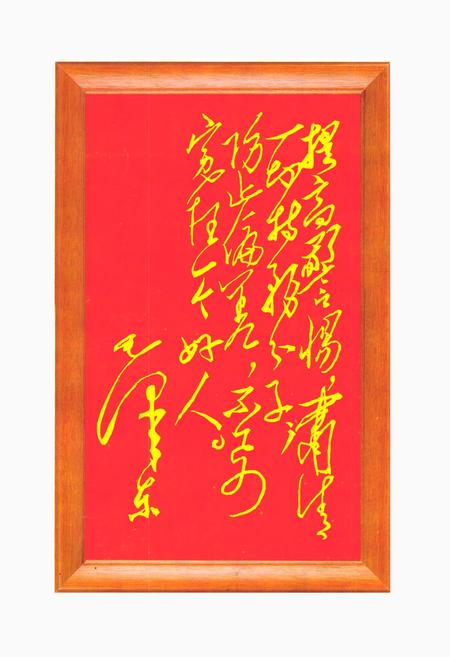 提高警惕，肃清
一切特务分子
防止偏差，不要
冤枉一个好人。
毛泽东